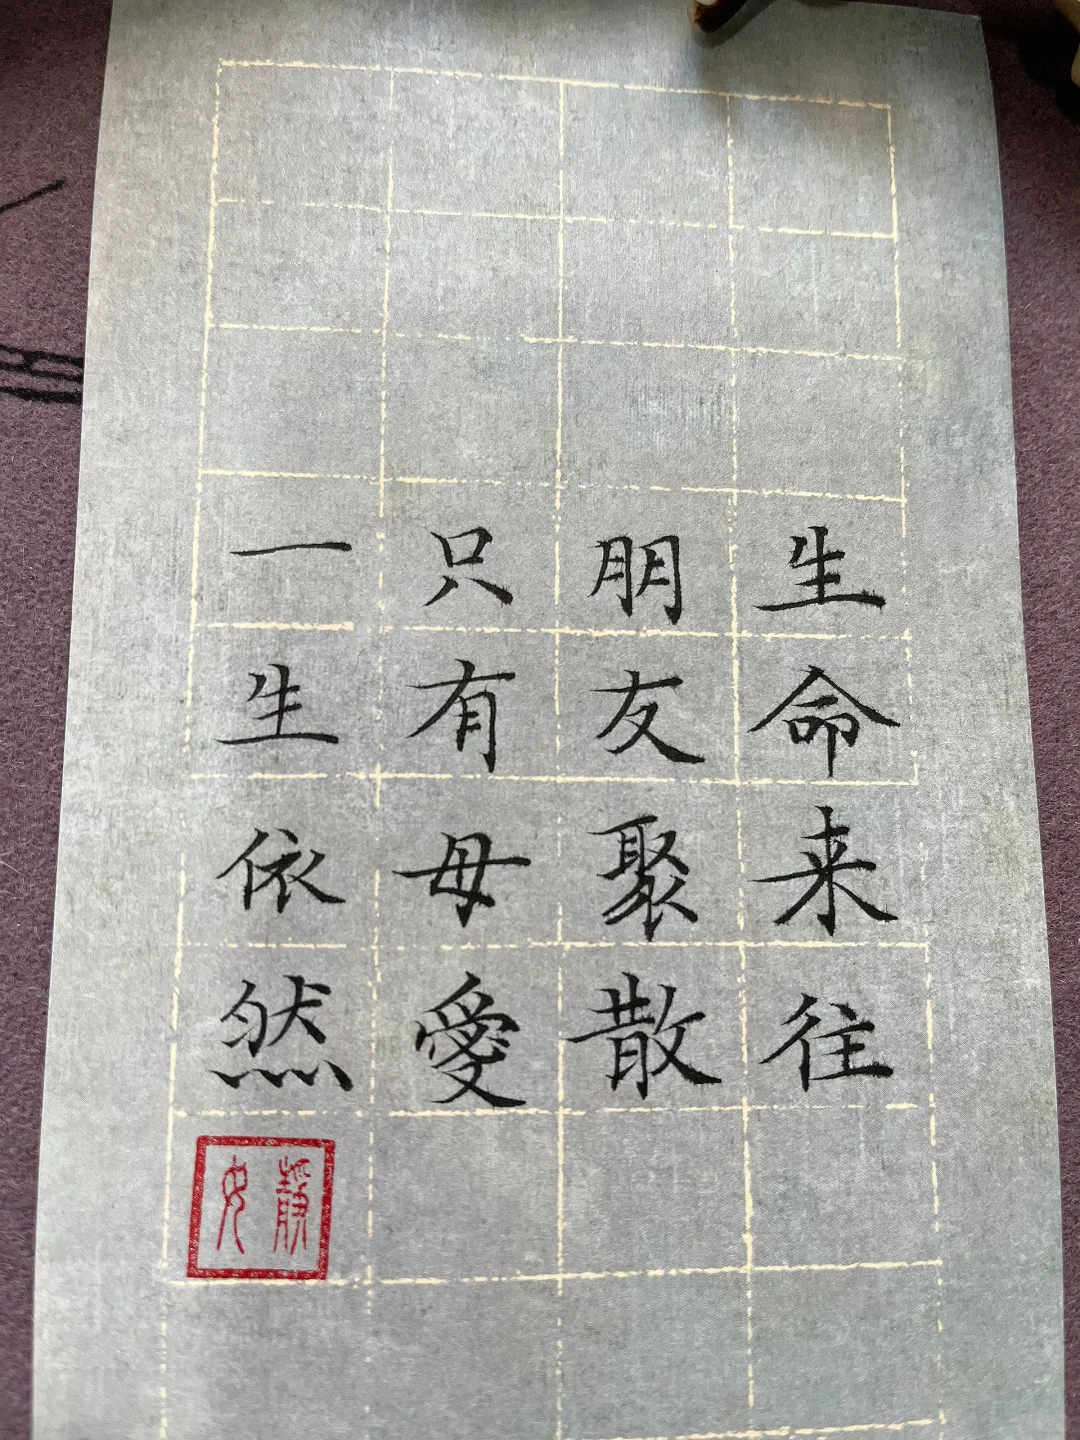 生命来往
朋友聚散
只有母愛
一生依然